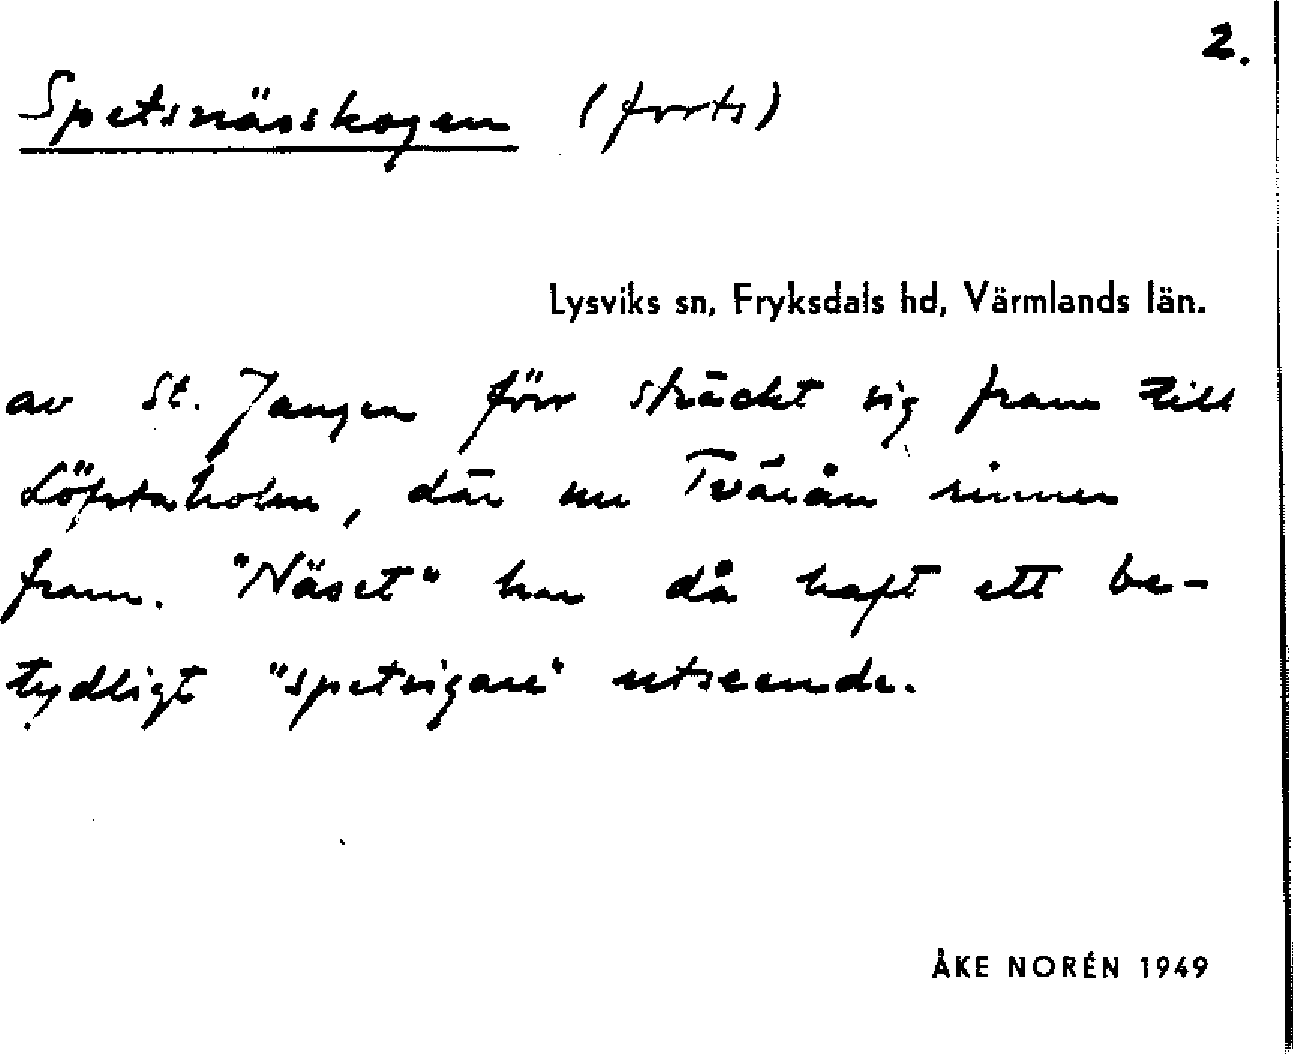 2.
Spetsnässkogen (forts)
Lysviks sn, Fryksdals hd, Värmlands län.
av St. Jangen förr sträckt sig fram till
Löpstaholm, där nu Tvärån rinner
fram. "Näset" har då haft ett be-
tydligt "spetsigare" utseende.
ÅKE NORÉN 1949